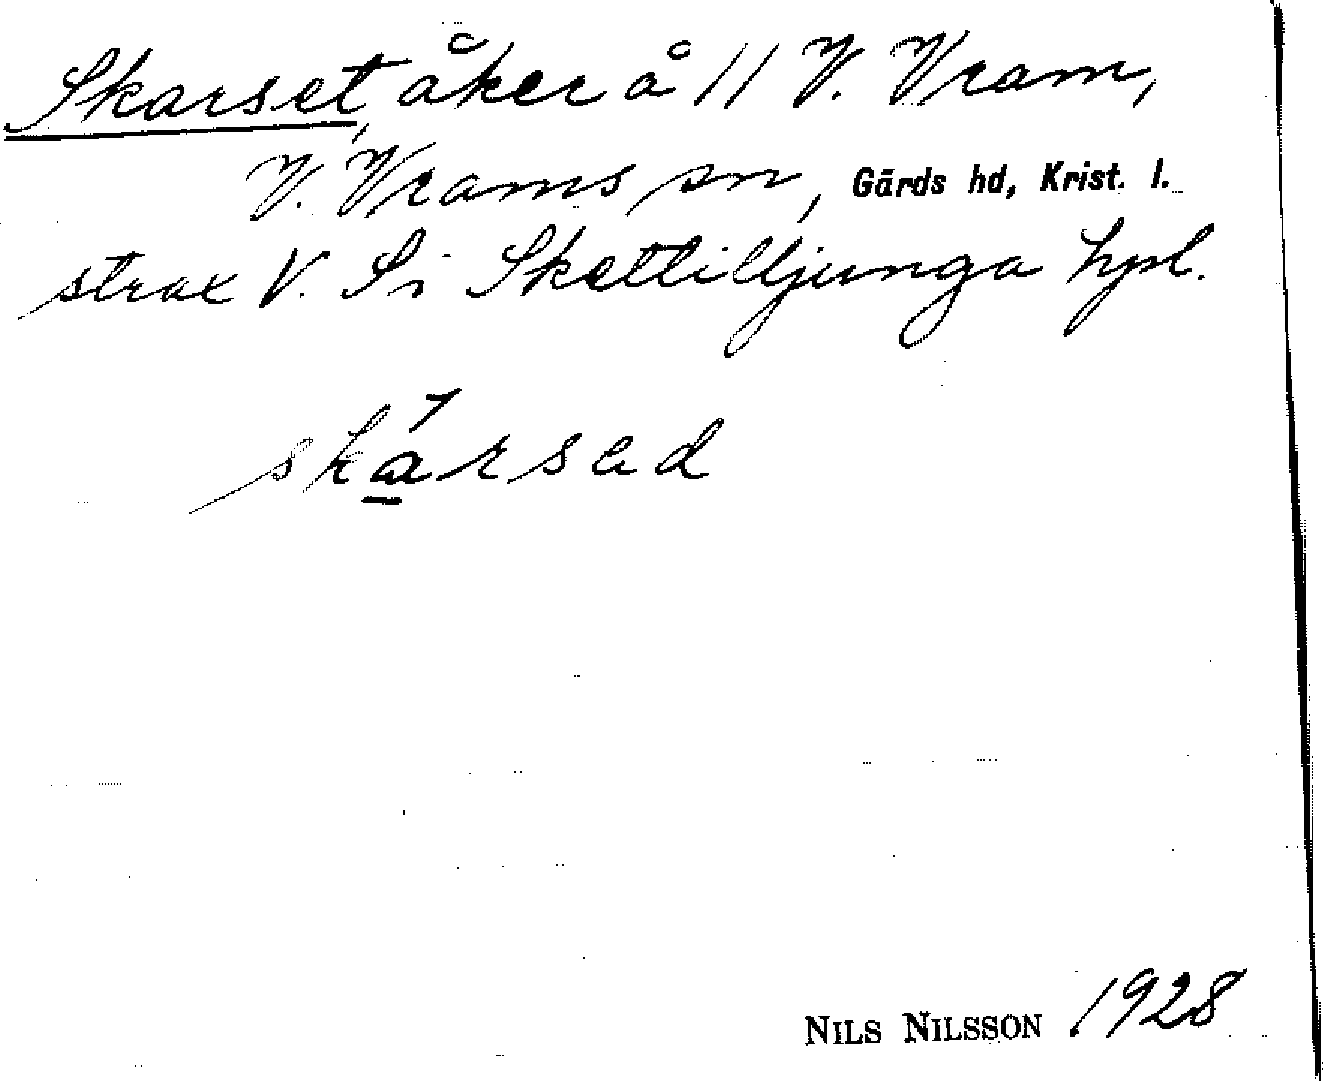 Skarset, åker å 11 V. Vram,
V. Vrams sn, Gärds hd, Krist. l.
strax V. Si Skettilljunga hpl.
skàrsad
NILS NILSSON 1928